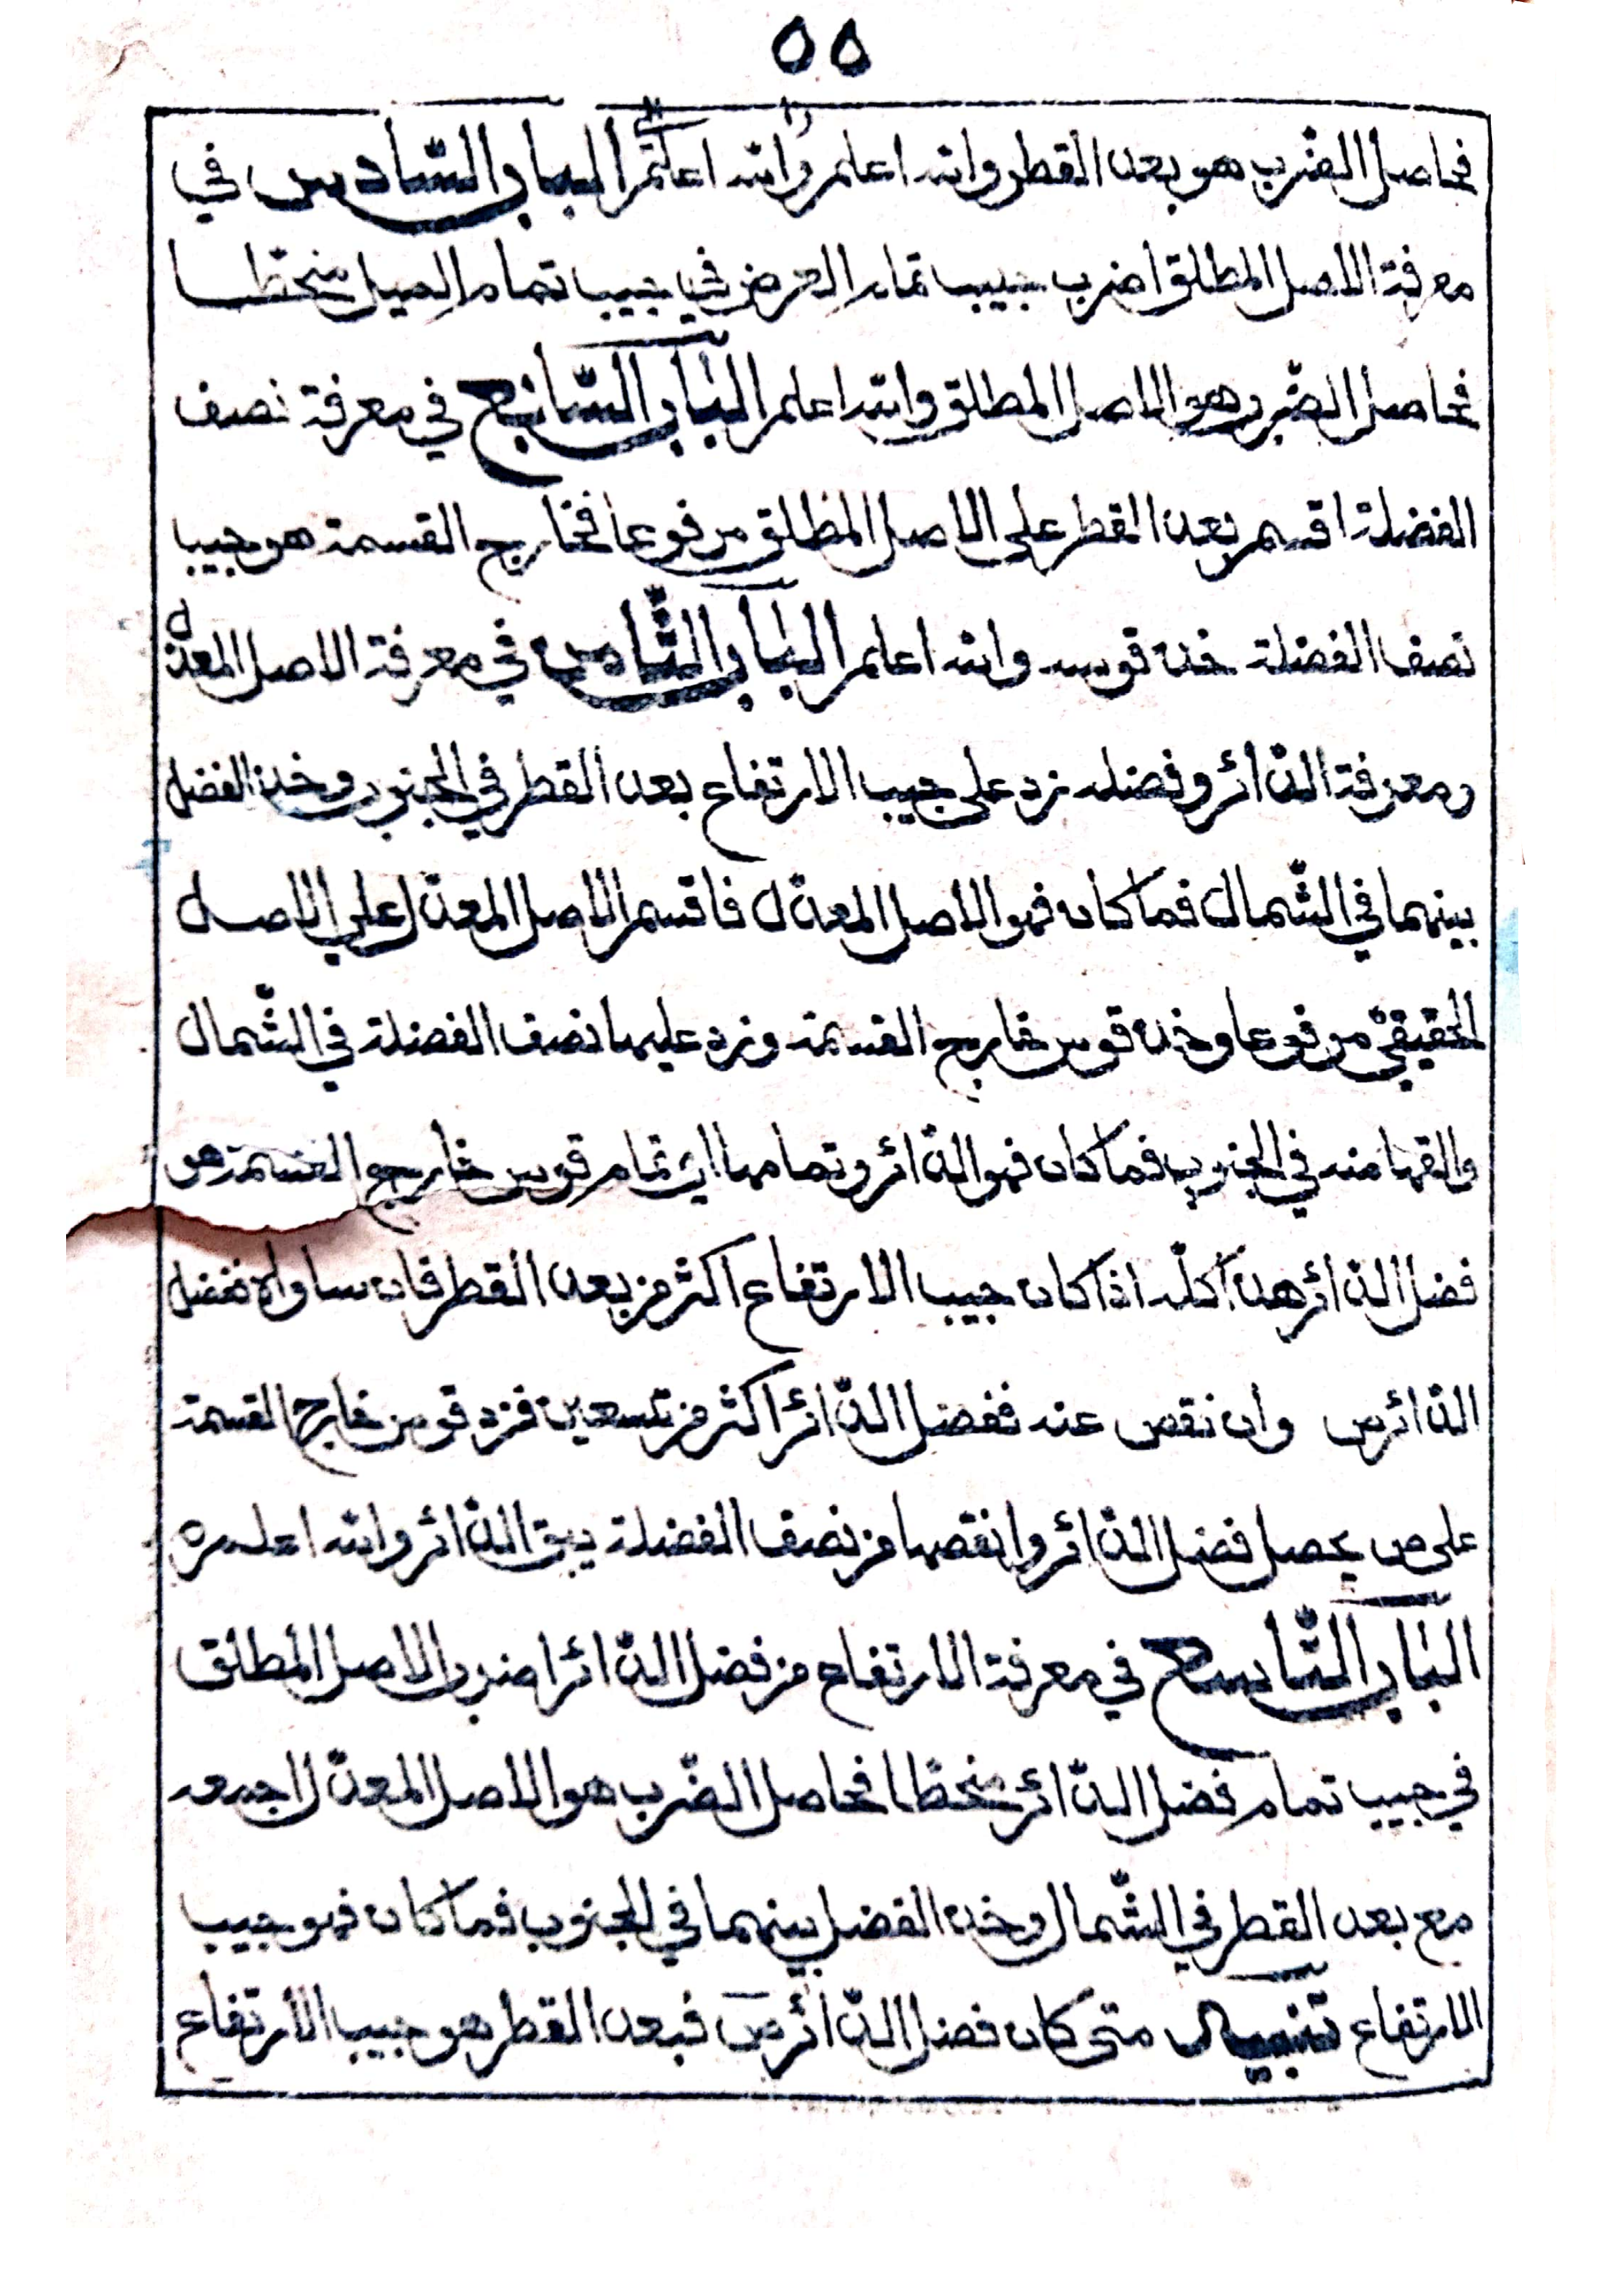 ٥٥
فحاصل الضرب هو بعد القطر والله اعلم والله اعلم الباب السّادس في
معرفة الاصل المطلق اضرب جيب تمام العرض في جيب تمام الميل منحطا
فحاصل الضّرب هو الاصل المطلق والله اعلم الباب السّابع في معرفة نصف
الفضلة اقسم بعد القطر على الاصل المطلق مرفوعا فخارج القسمة هو جيب
نصف الفضلة خذ قوسه والله اعلم الباب الثّامن في معرفة الاصل المعدّل
ومعرفة الدّائر وفضله زد على جيب الارتفاع بعد القطر في الجنوب وخذ الفضل
بينهما في الشّمال فما كان فهو الاصل المعدّل فاقسم الاصل المعدّل على الاصل
الحقيقيّ مرفوعا وخذ قوس خارج القسمة وزد عليها نصف الفضلة في الشّمال
والقها منه في الجنوب فما كان فهو الدّائر وتمامها اي تمام قوس خارج القسمة هو
فضل الدّائر هذا كلّه اذا كان جيب الارتفاع اكثر من بعد القطر فان ساواه ففضل
الدّائر ص وان نقص عنه ففضل الدّائر اكثر من تسعين فزد قوس خارج القسمة
على ص يحصل فضل الدّائر وانقصها من نصف الفضلة يبق الدّائر والله اعلم ه
الباب التّاسع في معرفة الارتفاع من فضل الدّائر اضرب الاصل المطلق
في جيب تمام فضل الدّائر منحطا فحاصل الضّرب هو الاصل المعدّل اجمعه
مع بعد القطر في الشّمال وخذ الفضل بينهما في الجنوب فما كان فهو جيب
الارتفاع تنبيه متى كان فضل الدّائر ص فبعد القطر هو جيب الارتفاع